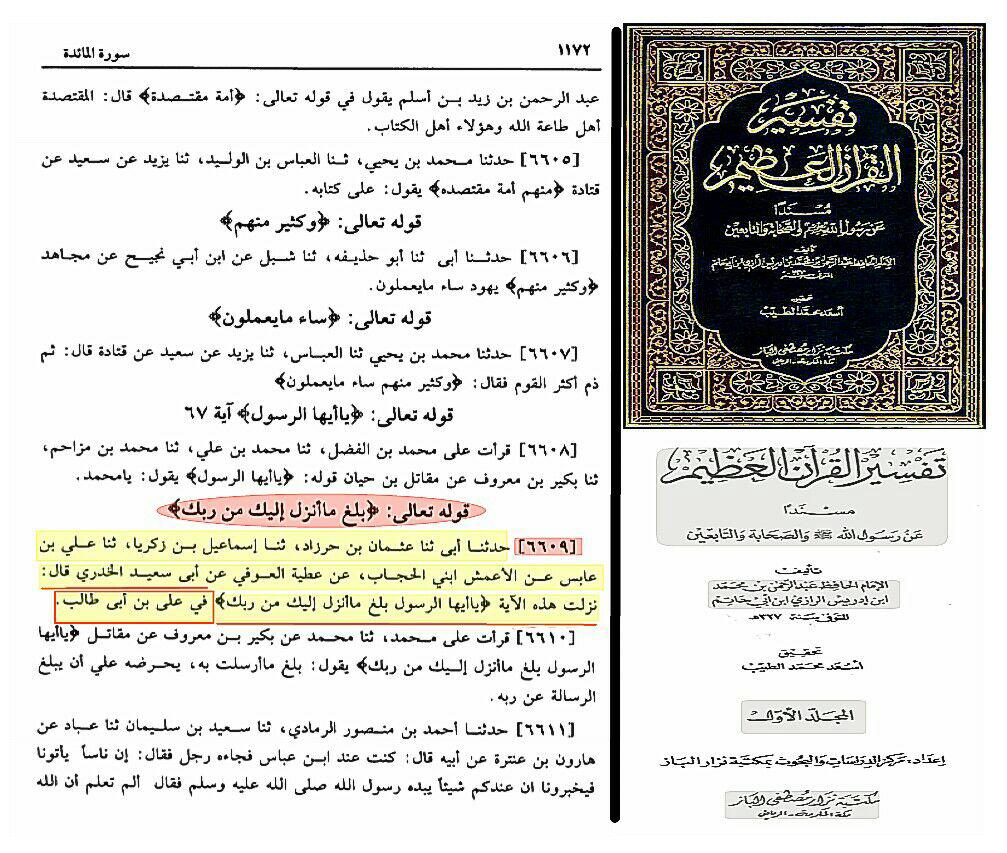 سورة المائدة ١١٧٢
عبد الرحمن بن زيد بـن أسلم يقول في قوله تعالى: ﴿أمة مقتـصدة﴾ قال: المقتصدة
أهل طاعة الله وهؤلاء أهل الكتاب.
[٦٦٠٥] حدثنا مـحمد بن يحيى، ثنـا العباس بن الوليـد، ثنا يزيد عن سـعيد عن
قتادة ﴿منهم أمة مقتصده﴾ يقول: على كتابه.
قوله تعالى: ﴿وكثير منهم﴾
[٦٦٠٦] حدثنـا أبى ثنا أبو حذيفه، ثنا شبل عن ابن أبي نجيح عن مجاهد
﴿وكثير منهم﴾ يهود ساء مايعملون.
قوله تعالى: ﴿ساء مايعملون﴾
[٦٦٠٧] حدثنا محمد بن يحيي ثنا العباس، ثنا يزيد عن سعيد عن قتادة قال: ثم
ذم أكثر القوم فقال: ﴿وكثير منهم ساء مايعملون﴾
قوله تعالى: ﴿ياأيها الرسول﴾ آية ٦٧
[٦٦٠٨] قرأت على محمد بن الفضل، ثنا محمد بن علي، أنبا محمد بن مزاحم،
ثنا بكير بن معروف عن مقاتل بن حيان قوله: ﴿ياأيها الرسول﴾ يقول: يامحمد.
قوله تعالى: ﴿بلغ ماأنزل إليك من ربك﴾
[٦٦٠٩] حدثنـا أبى ثنا عثـمان بن حرزاد، ثنـا إسماعيل بـن زكريا، ثنا علي بن
عابس عـن الأعمش ابني الحجـاب، عن عطية العـوفي عن أبى سعيد الخدري قال:
نزلت هذه الآية ﴿ياأيها الرسول بلغ ماأنزل إليك من ربك﴾ في على بن أبى طالب.
[٦٦١٠] قرأت على مـحمد، ثنا محمد عن بكير بـن معروف عن مقاتـل ﴿ياأيها
الرسول بلغ ماأنزل إلـيك من ربك﴾ يقول: بلغ ماأرسلت به، يحـرضه علي أن يبلغ
الرسالة عن ربه.
[٦٦١١] حدثنـا أحمد بن منـصور الرمادي، ثنا سعيد بن سلـيمان ثنا عبـاد عن
هارون بن عنترة عن أبيه قال: كنت عند ابـن عباس فجاءه رجل فقال: إن ناساً يأتونا
فيخبرونا ان عندكم شيئاً يبده رسول الله صلى الله عليه وسلم فقال ألم تعلم أن الله
تفسير
القرآن العظيم
مسندًا
عن رسول الله ﷺ والصحابة والتابعين
تأليف
الإمام الحافظ عبد الرحمن بن محمد بن إدريس الرازي ابن أبي حاتم
تحقيق
أسعد محمد الطيب
مكتبة نزار مصطفى الباز
مكة المكرمة - الرياض
تفسير القرآن العظيم
مسندًا
عن رسول الله ﷺ والصحابة والتابعين
تأليف
الإمام الحافظ عبد الرحمن بن محمد
ابن إدريس الرازي ابن أبي حاتم
المتوفى سنة ٣٢٧هـ
تحقيق
أسعد محمد الطيب
المجلد الأول
إعداد: مركز الدراسات والبحوث بمكتبة نزار الباز
مكتبة نزار مصطفى الباز
مكة المكرمة - الرياض